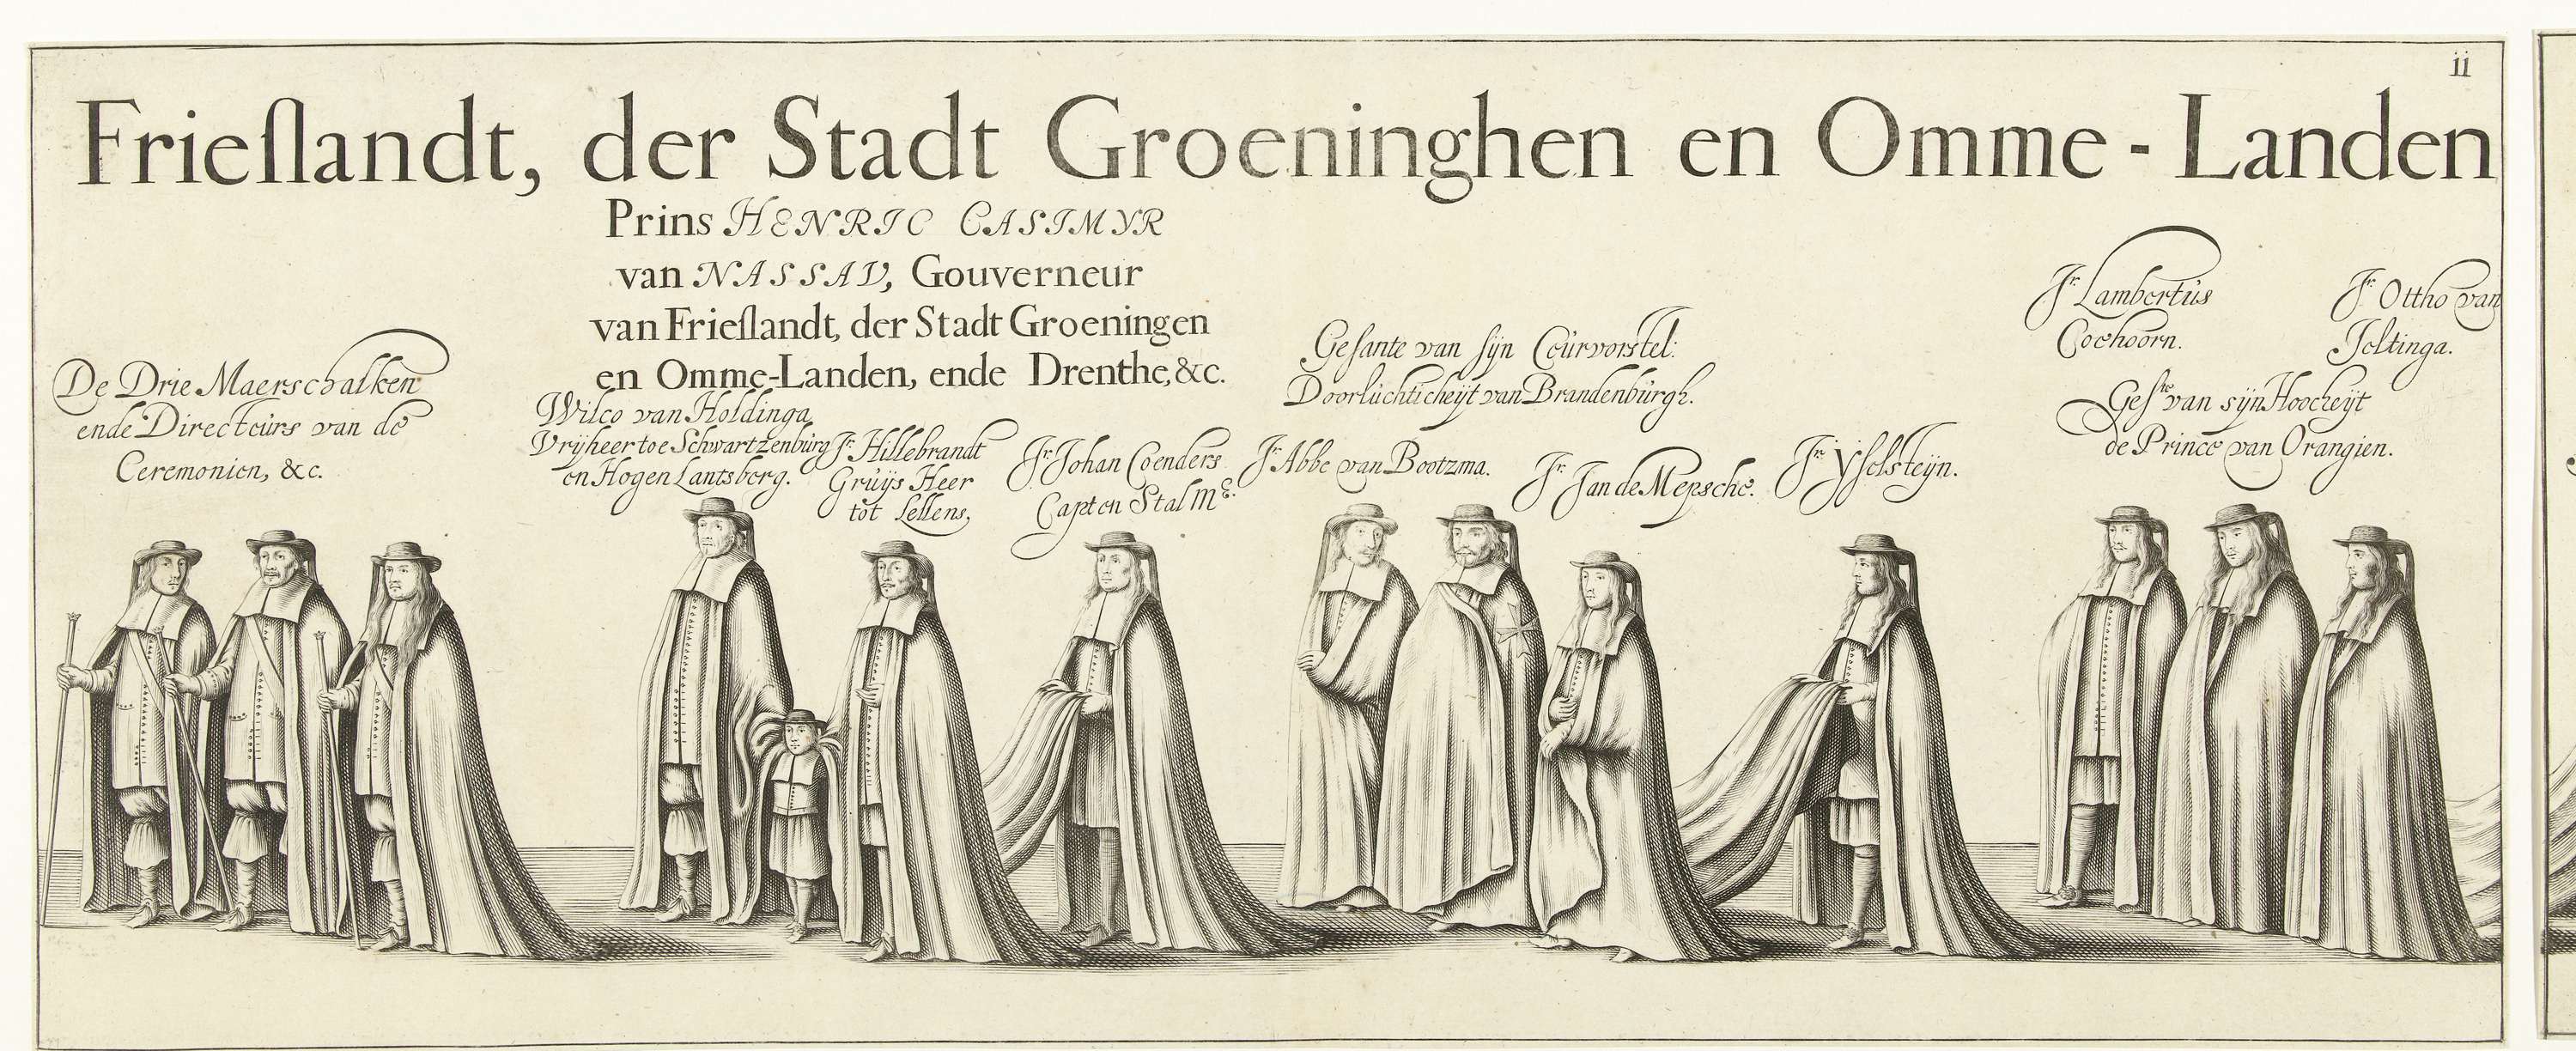 ii
Frieſlandt, der Stadt Groeninghen en Omme-Landen
Prins HENRIC CASIMYR
van NASSAV, Gouverneur
van Frieſlandt, der Stadt Groeningen
en Omme-Landen, ende Drenthe, &c.
De Drie Maerschalken
ende Directeurs van de
Ceremonien, &c.
Wilco van Holdinga
Vrijheer toe Schwartzenburg
en Hogen Lantsberg.
Jr. Hillebrandt
Gruijs Heer
tot Lellens,
Jr. Johan Coenders
Capt en Stal Me.
Geſante van ſijn Ceurvorstel:
Doorluchticheijt van Brandenburgh.
Jr. Abbe van Bootzma.
Jr. Jan de Mepsche.
Jr. Yſelsteijn.
Jr. Lambertus
Coehoorn.
Jr. Ottho van
Jeltinga.
Geſte van sijn Hoocheijt
de Prince van Orangien.